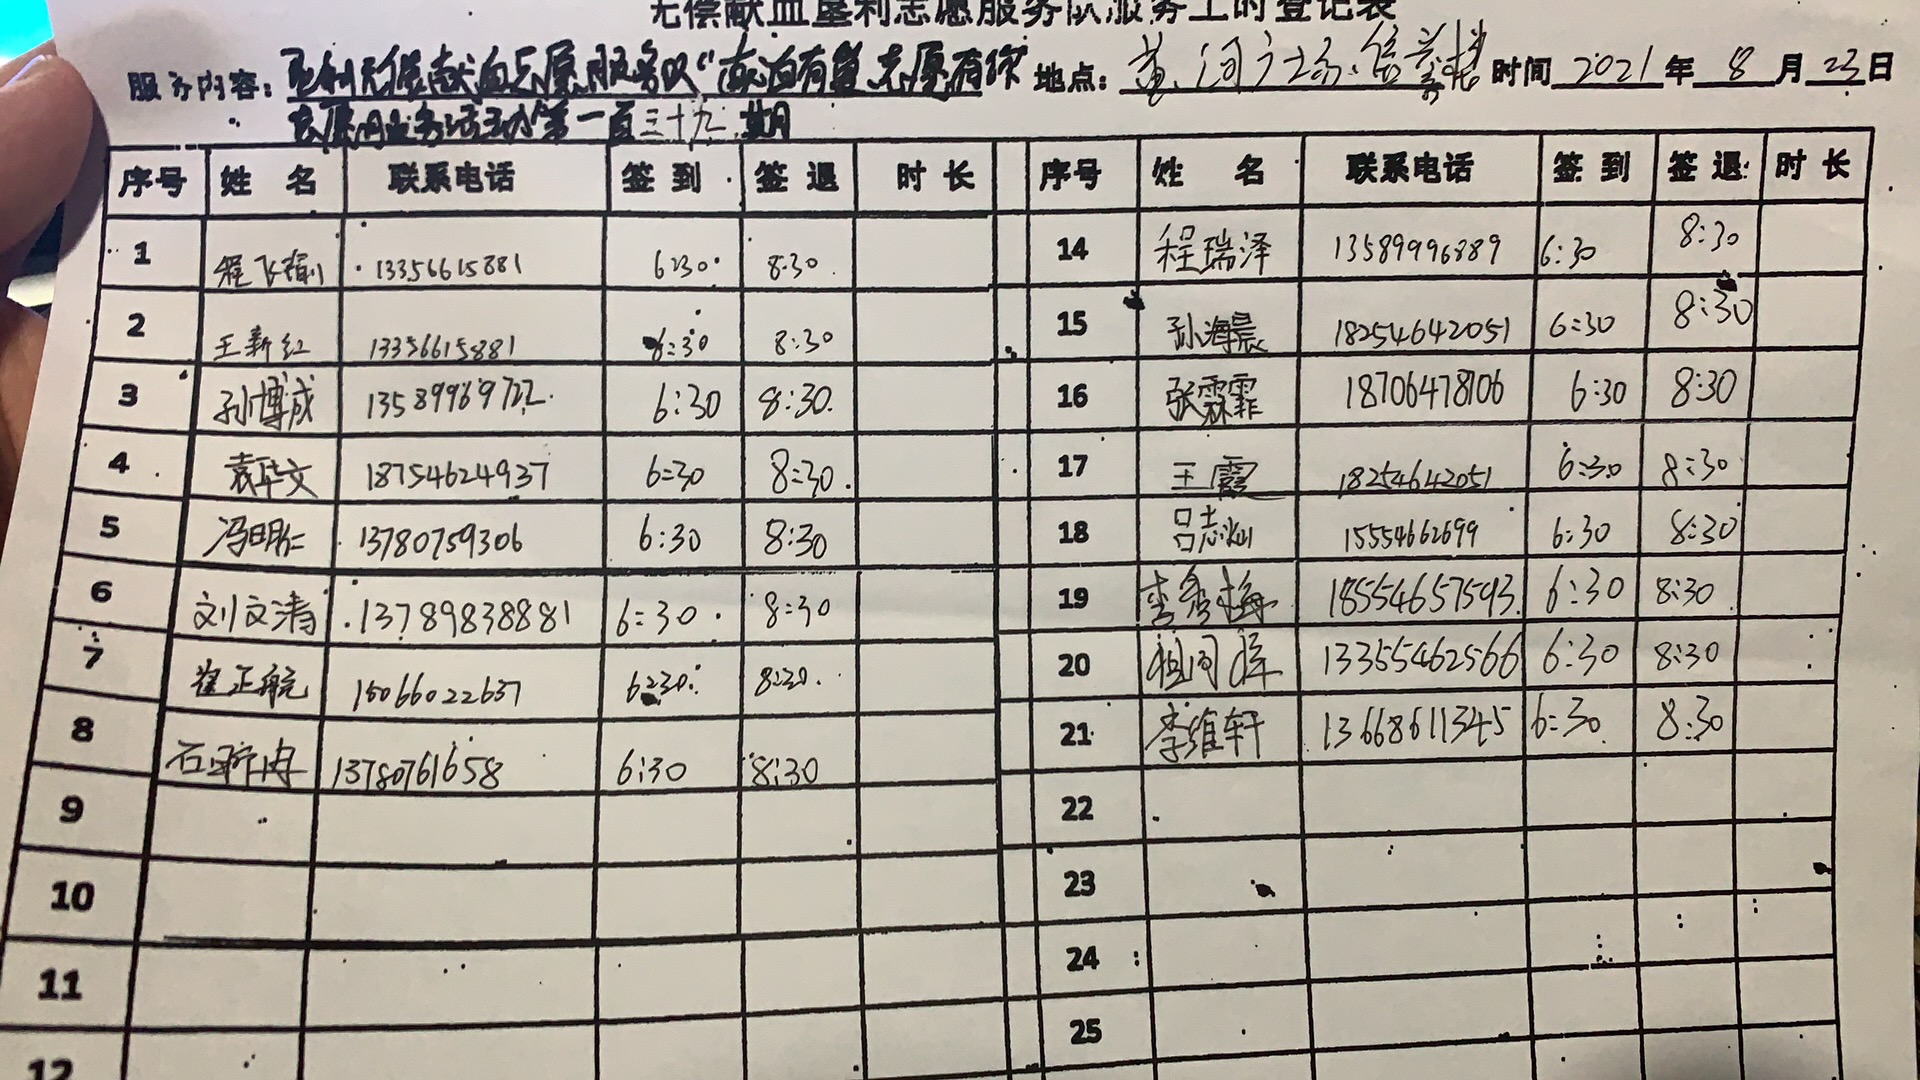 无偿献血垦利志愿服务队服务工时登记表
服务内容：垦利无偿献血志愿服务队“ 有 志愿有你” 地点：黄河广场 时间 2021 年 8 月 23 日
志愿服务活动第一百三十九期
序号 姓 名 联系电话 签 到 签 退 时 长 序号 姓 名 联系电话 签 到 签 退 时 长
1 程飞 13356615881 6:30 8:30 14 程瑞泽 13589996889 6:30 8:30
2 王新红 13356615881 6:30 8:30 15 孙海晨 18254642051 6:30 8:30
3 孙博成 6:30 8:30 16 张霖霏 18706478106 6:30 8:30
4 袁华文 18754624937 6:30 8:30 17 王霞 18254642051 6:30 8:30
5 冯明仁 13780759306 6:30 8:30 18 吕志灿 15554662699 6:30 8:30
6 刘文清 13789838881 6:30 8:30 19 李秀梅 18554657593 6:30 8:30
7 崔正航 15066022637 6:30 8:30 20 13355462566 6:30 8:30
8 石 13780761658 6:30 8:30 21 李维轩 13668611345 6:30 8:30
9 22
10 23
11 24
12 25